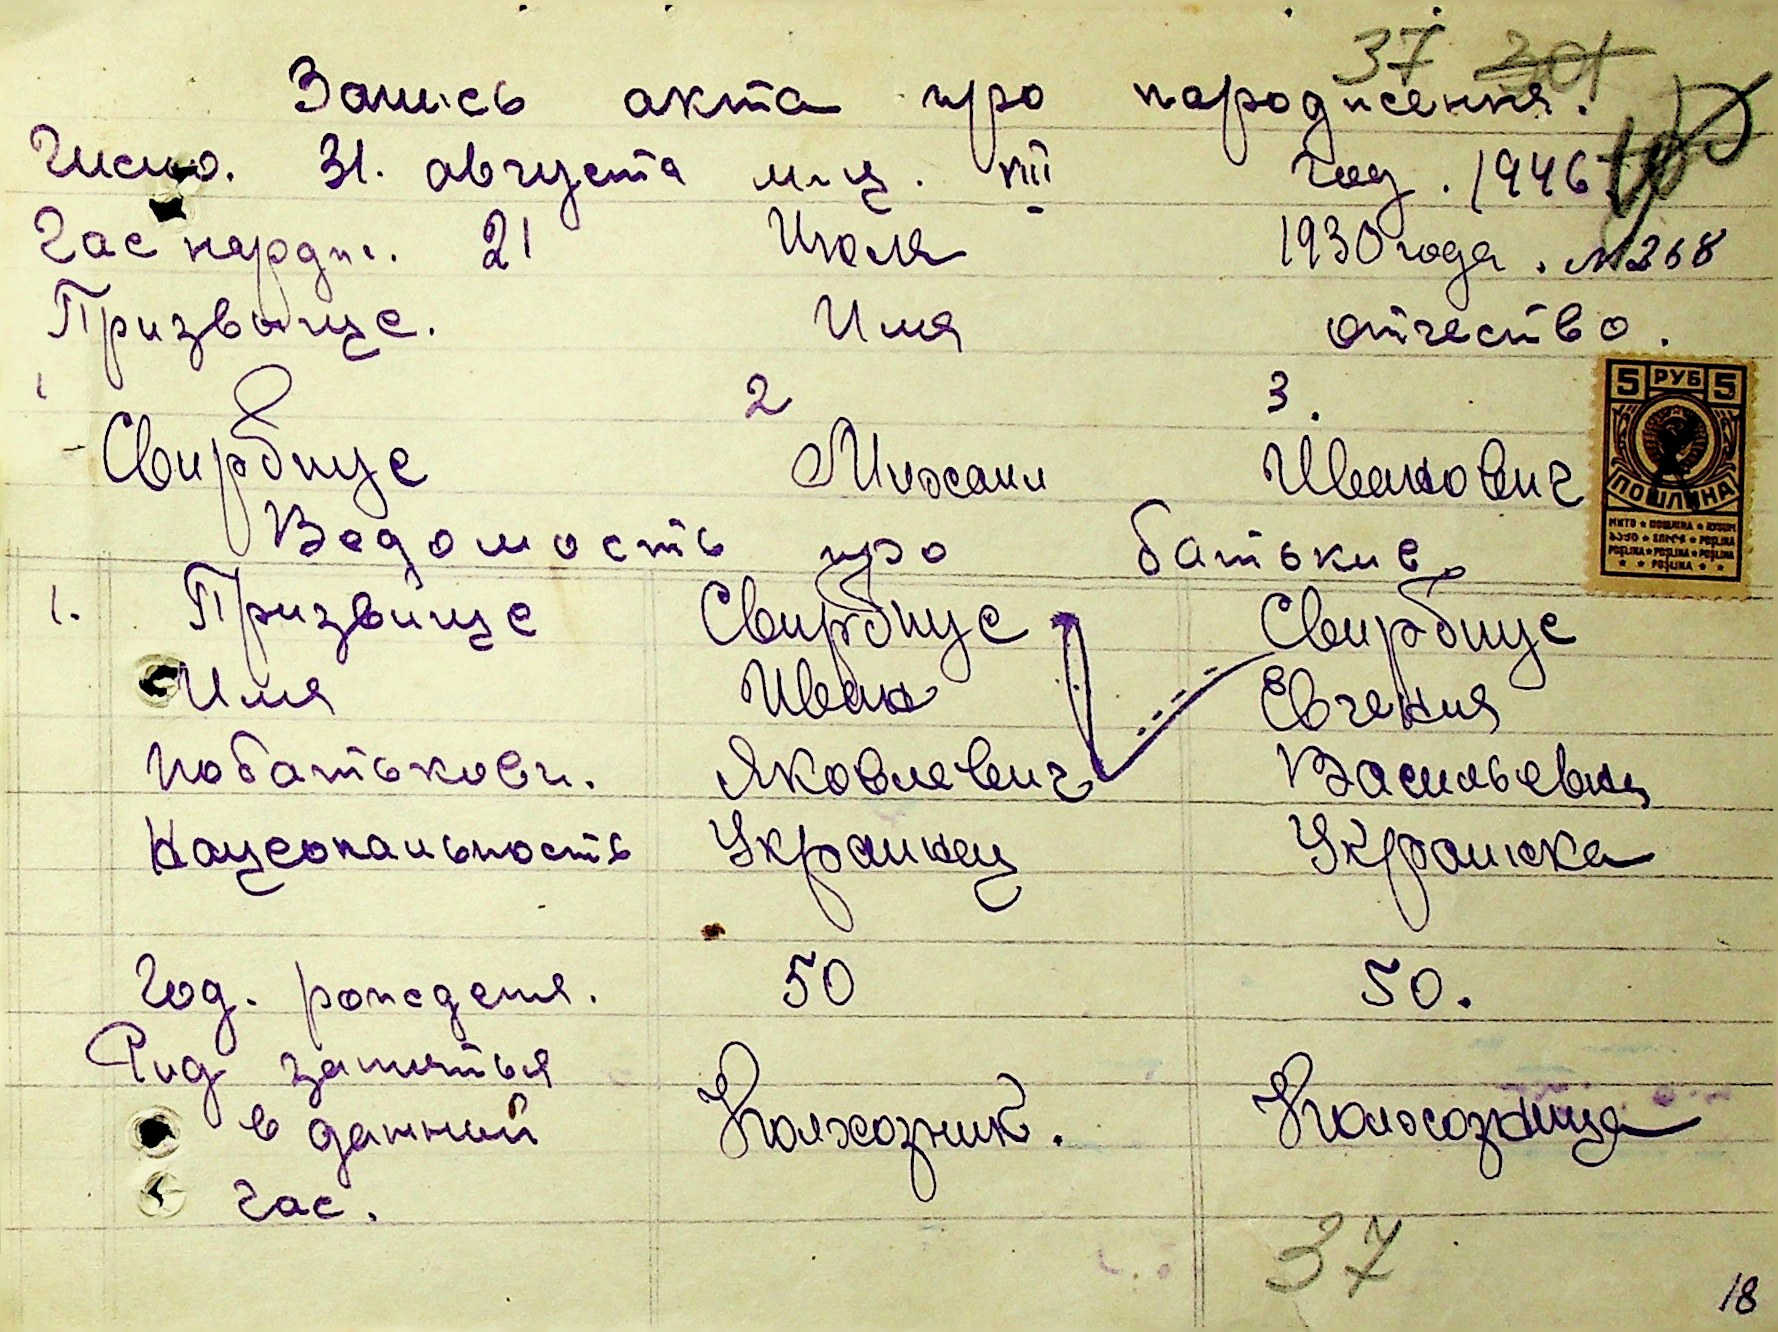 37 301
Запись акта про народження.
Число. 31. августа м-ц. VIII год. 1946
Час нардж. 21 Июля 1930 года. №268
Призвище. Имя отчество.
1 2 3.
Свирбиус Михаил Иванович
5 РУБ 5
ПОШЛИНА
Ведомость про батькив.
1. Призвище Свирбиус Свирбиус
Имя Иван Евгения
Побатькови. Яковлевич Васильевна
Нацеональность Украинец Украинка
Год. рождения. 50 50.
Рид занятья
в данний Колхозник. Колхозница
час.
37
18